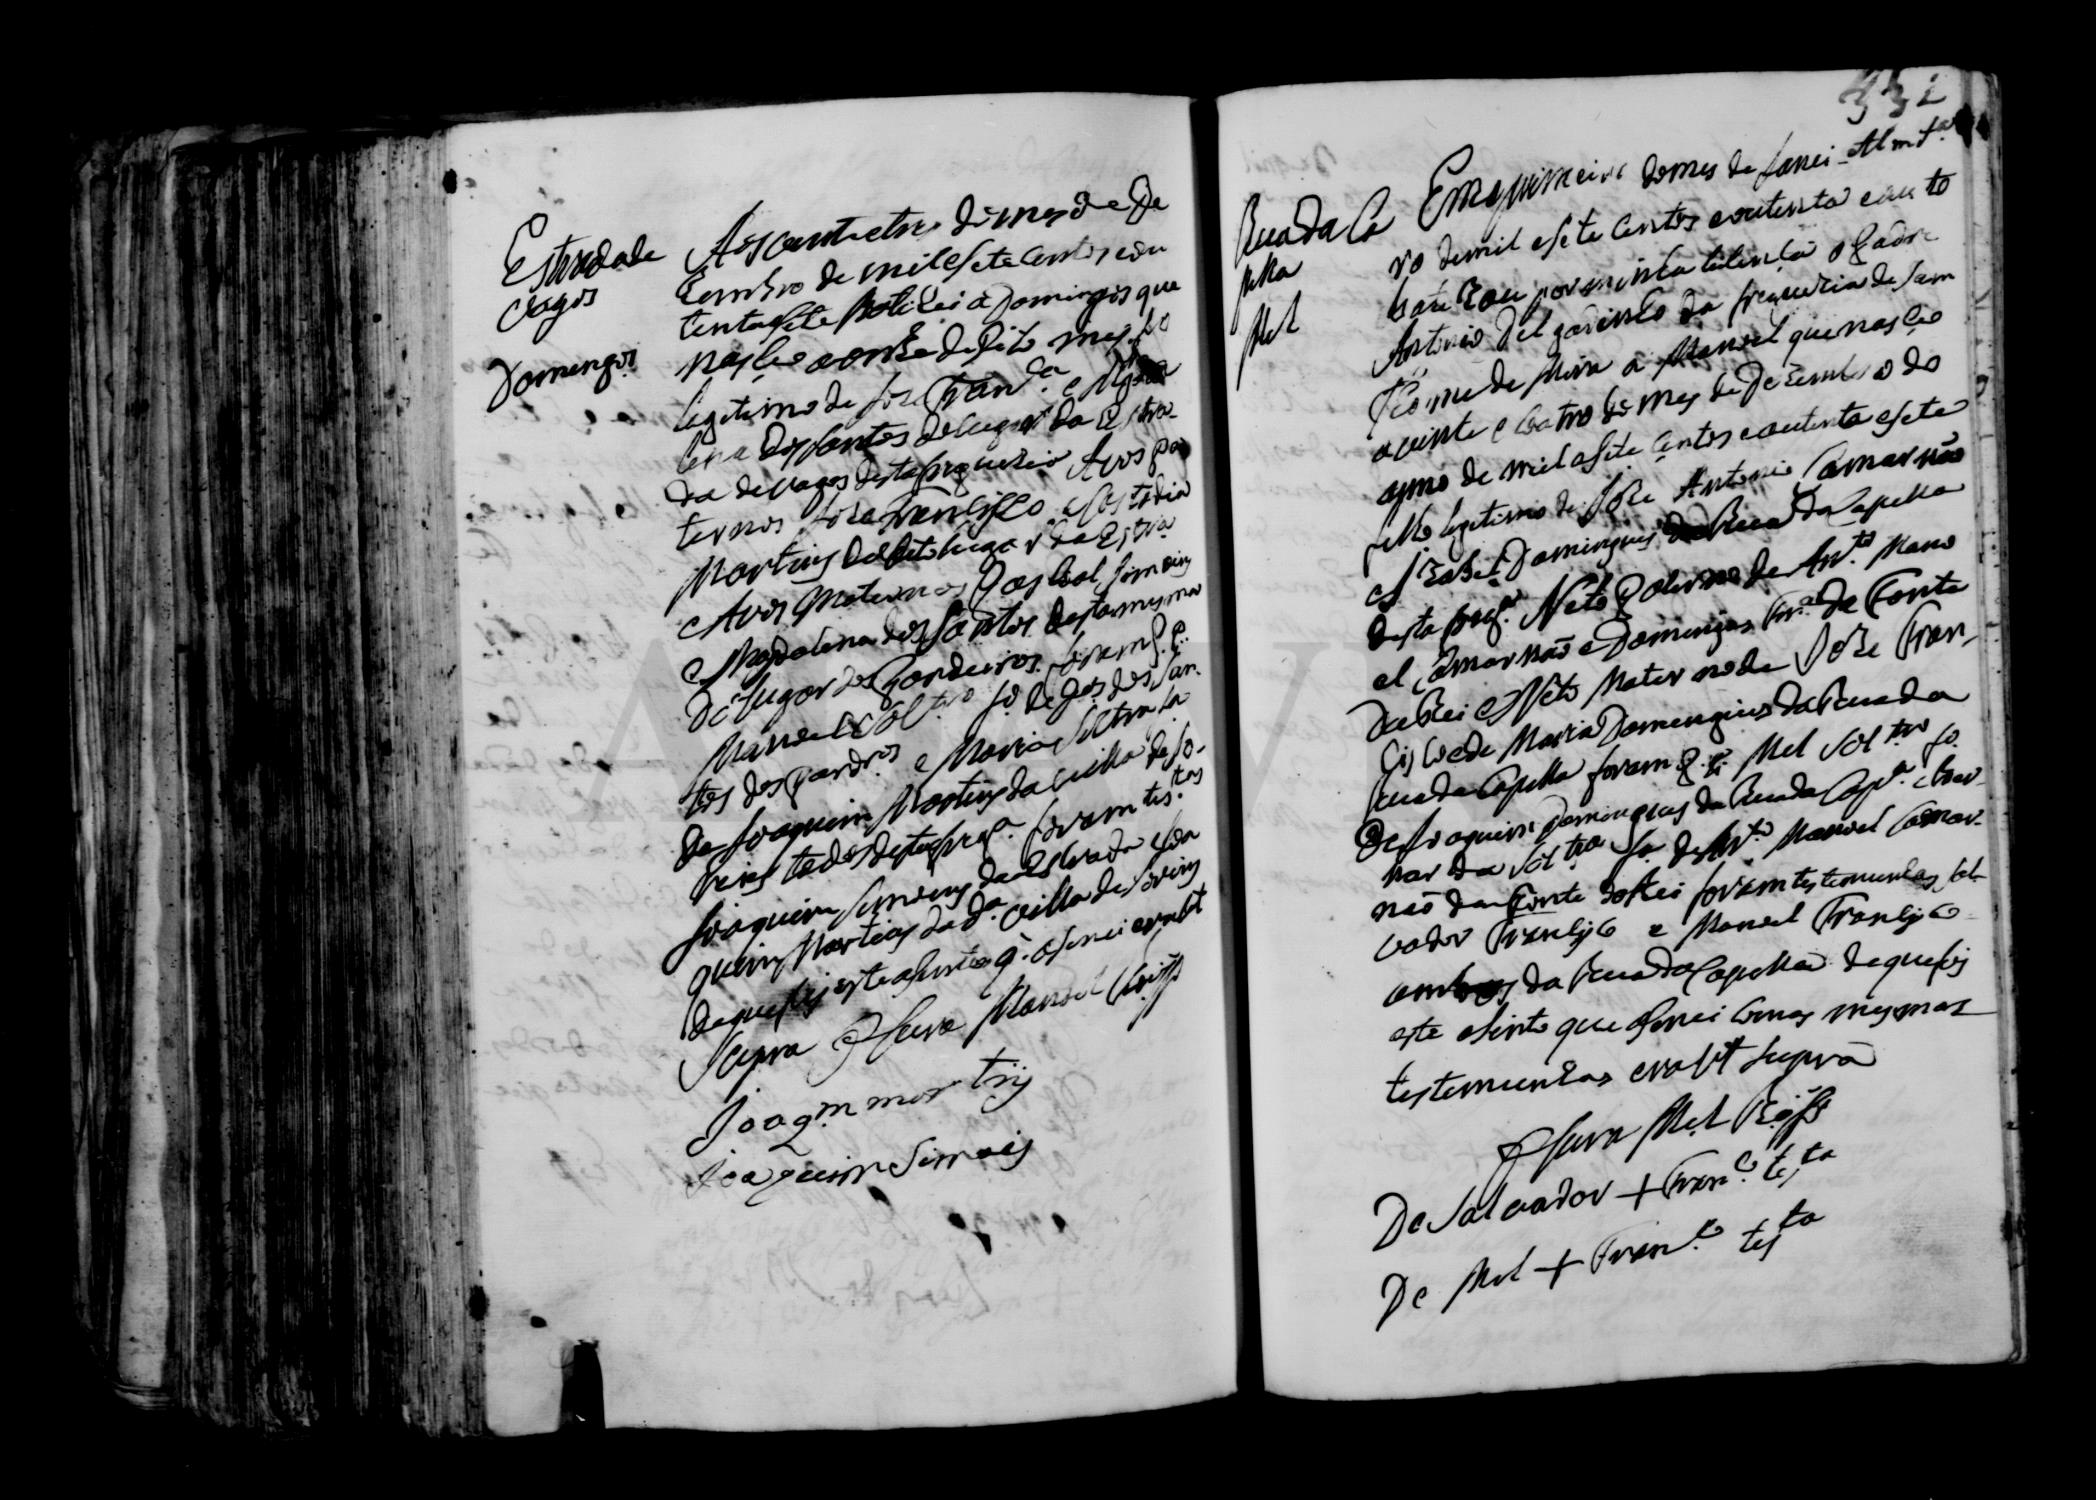 Estrada de
Vagos
Domingos
Aos vinte e tres do mes de De
zembro de mil e sete centos e ou
tenta e sete Batizei a Domingos que
nasceo a onze do dito mes fo
legitimo de Joze Franco e Magda
lena dos Santos do lugar da Estra
da de Vagos desta freguezia Avos pa
ternos Joze Francisco e Costodia
Martins do dito lugar da Estra
e Avos Maternos Pascoal Simoens
e Magdalena dos Santos desta mesma
do lugar dos Gandeiros foram P. P.
Manoel Soltro fo de Dos dos San
tos dos e Maria Soltra fa
de Joaquim Martins da villa de So
reins todos desta frega. foram tes.tas
Joaquim Simoens da Estrada e Joa
quim Martins da da. villa de Soreins
de que fis este asento q. asinei era ut
Supra O Cura Manoel
Joaqm martis
Joaquim Simois
332
Rua da Ca
pella
Mel
Em o primeiro do mes de Janei Al mta.
ro de mil e sete centos e outenta e outo
batizou por minha licença o Padre
Antonio Delgadinho da freguezia de Sam
Thome de Mira a Manoel que nasceo
a vinte e coatro do mes de Dezembro do
anno de mil e sete centos e outenta e sete
filho legitimo de Joze Antonio Camarnão
e Izabel Domingues da Rua da Capella
desta freg.a Neto Paterno de Anto. Mano
el Camarnão e Domingas Fra. da Fonte
do Rei e Neto Materno de Joze Fran
cisco e de Maria Domingues da Rua da
Rua da Capella foram P. P. Mel Soltro fo.
de Joaquim Domingues da Rua da Capa. e Ber
narda Soltra fa. de Anto. Manoel Camar
não da Fonte do Rei foram testemunhas Sal
vador Francisco e Manoel Francisco
ambos da Rua da Capella de que fis
este asento que asinei com as mesmas
testemunhas era ut supra
O Cura Mel
De Salvador + Franco. testa
De Mel + Franco. testa